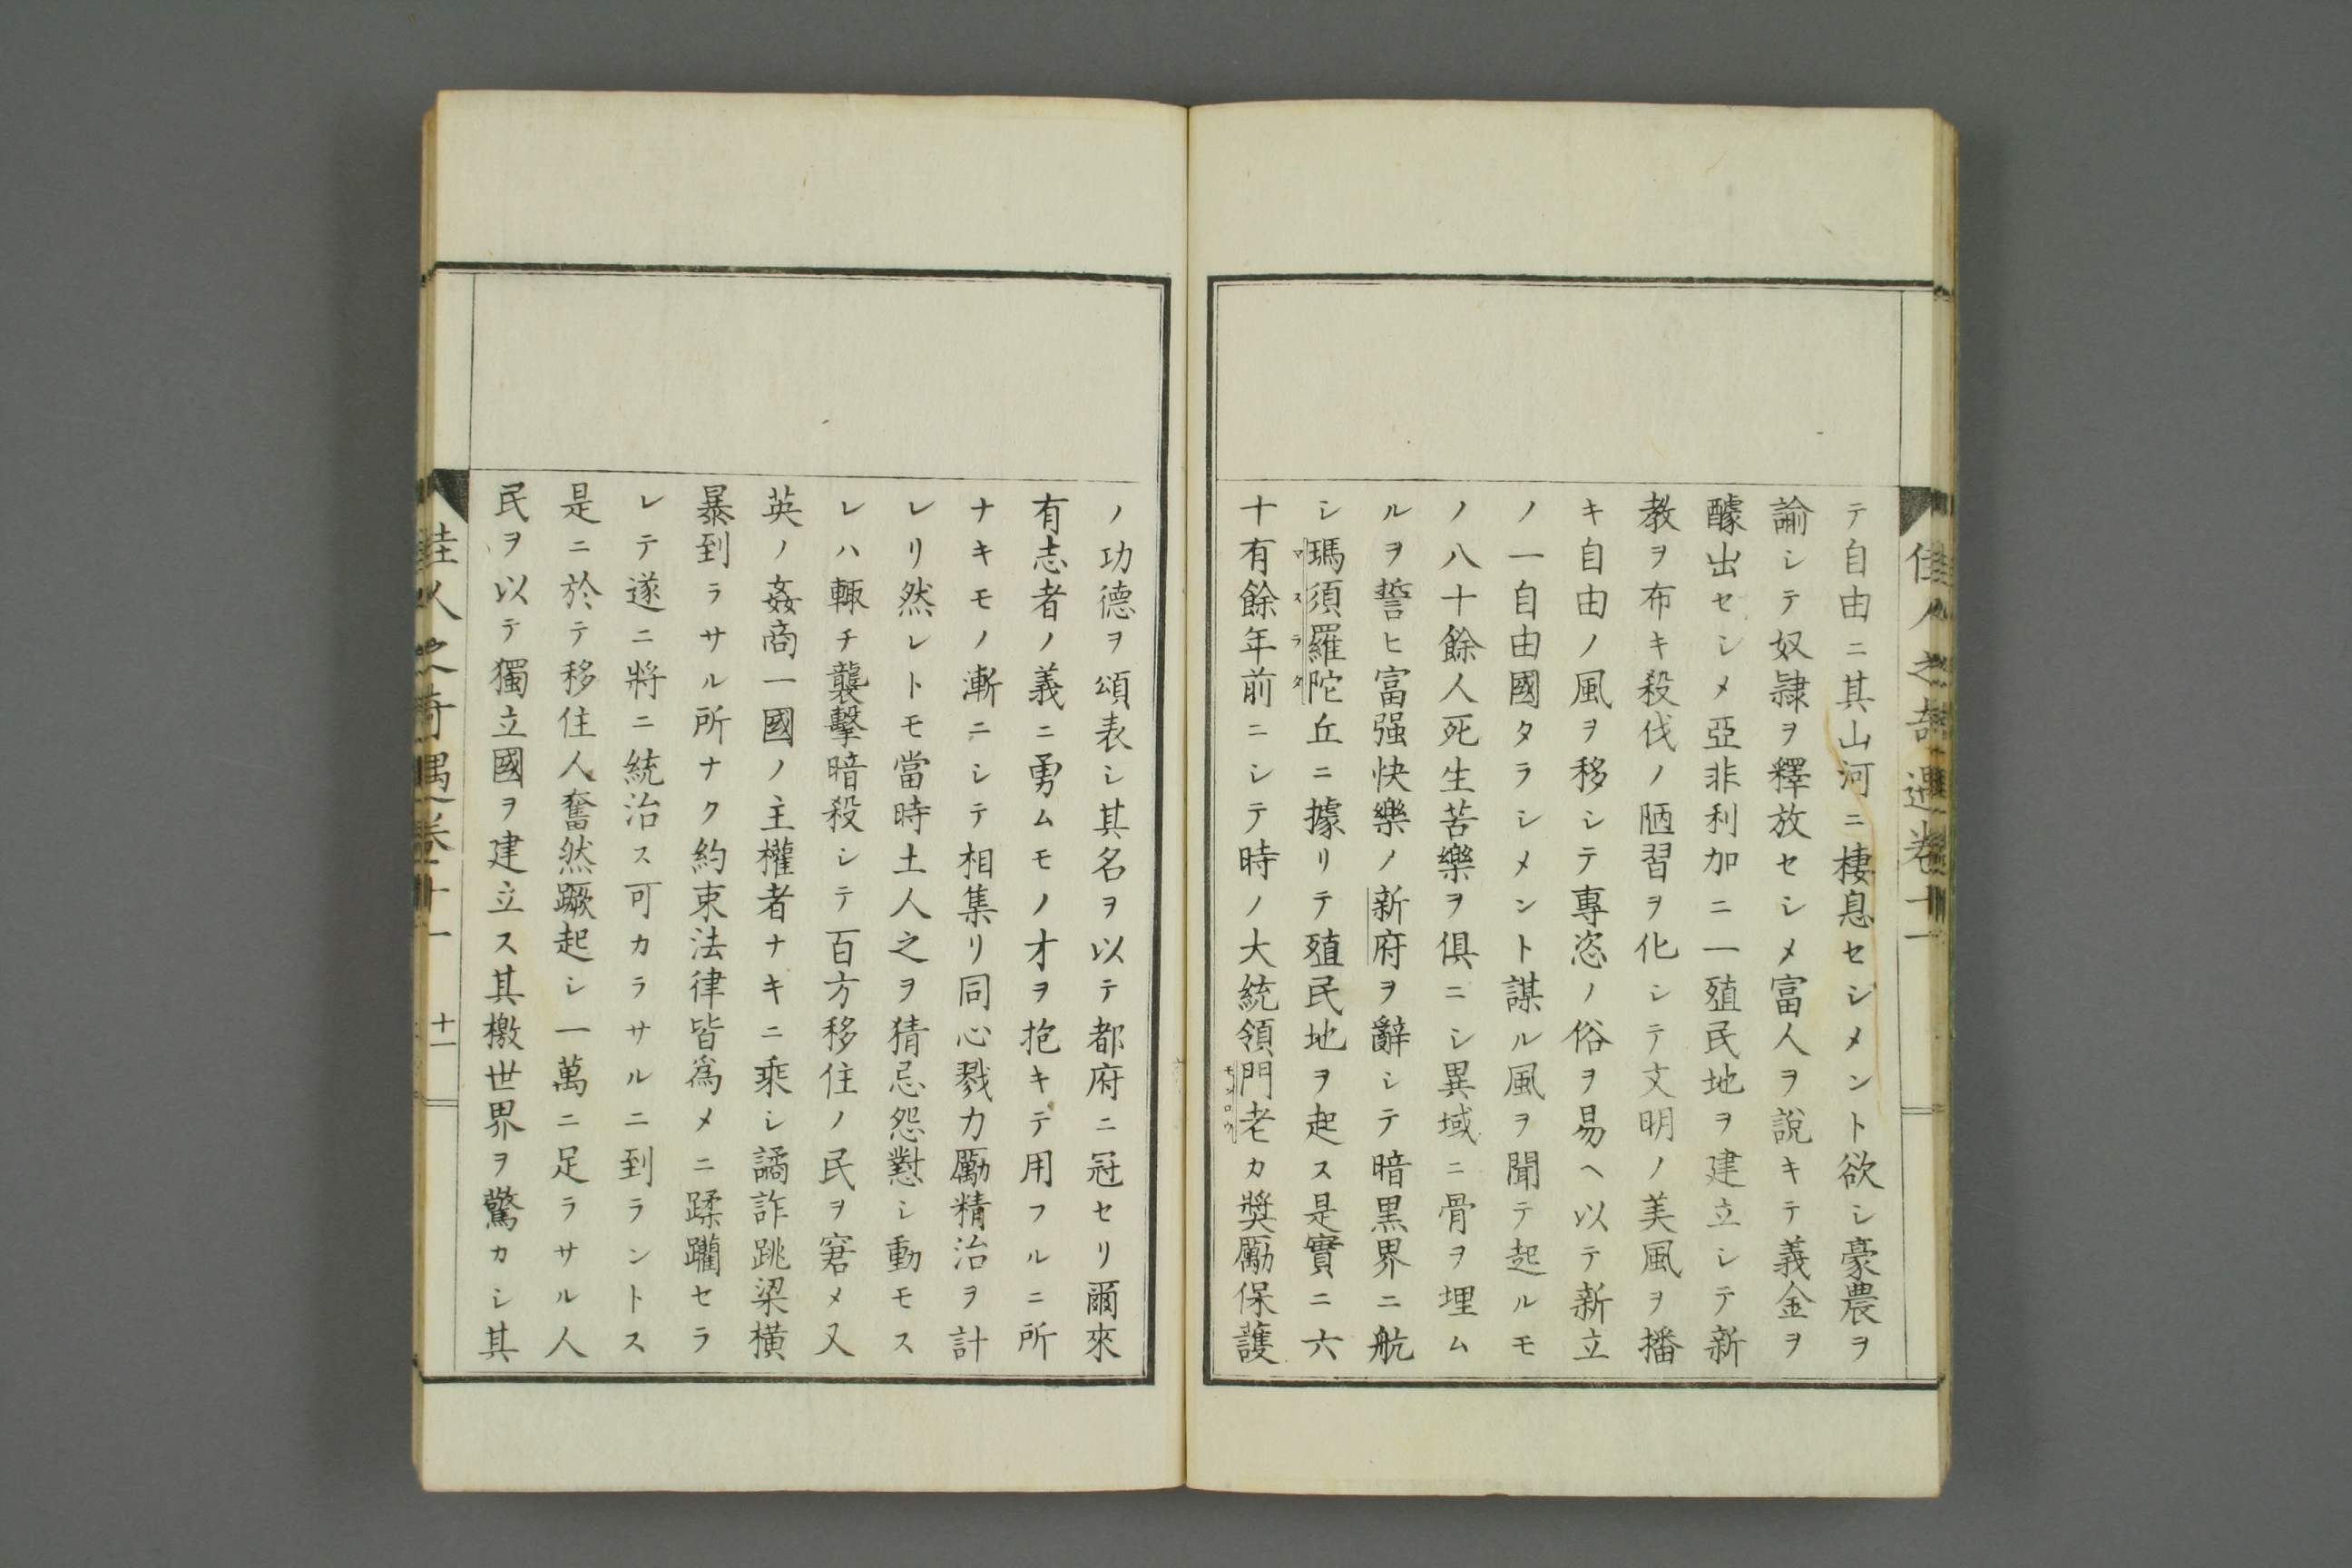 佳人之奇遇卷十一
テ自由ニ其山河ニ棲息セシメント欲シ豪農ヲ
諭シテ奴隷ヲ釋放セシメ富人ヲ說キテ義金ヲ
醵出セシメ亞非利加ニ一殖民地ヲ建立シテ新
教ヲ布キ殺伐ノ陋習ヲ化シテ文明ノ美風ヲ播
キ自由ノ風ヲ移シテ專恣ノ俗ヲ易ヘ以テ新立
ノ一自由國タラシメント謀ル風ヲ聞テ起ルモ
ノ八十餘人死生苦樂ヲ俱ニシ異域ニ骨ヲ埋ム
ルヲ誓ヒ富强快樂ノ新府ヲ辭シテ暗黑界ニ航
シ瑪須羅陀丘ニ據リテ殖民地ヲ起ス是實ニ六
マスラダ
十有餘年前ニシテ時ノ大統領門老カ奬勵保護
モンロウ
ノ功德ヲ頌表シ其名ヲ以テ都府ニ冠セリ爾來
有志者ノ義ニ勇ムモノ才ヲ抱キテ用フルニ所
ナキモノ漸ニシテ相集リ同心戮力勵精治ヲ計
レリ然レトモ當時土人之ヲ猜忌怨懟シ動モス
レハ輙チ襲擊暗殺シテ百方移住ノ民ヲ窘メ又
英ノ姦商一國ノ主權者ナキニ乘シ譎詐跳梁橫
暴到ラサル所ナク約束法律皆爲メニ蹂躪セラ
レテ遂ニ將ニ統治ス可カラサルニ到ラントス
是ニ於テ移住人奮然蹶起シ一萬ニ足ラサル人
民ヲ以テ獨立國ヲ建立ス其檄世界ヲ驚カシ其
佳人之奇遇卷十一
十一